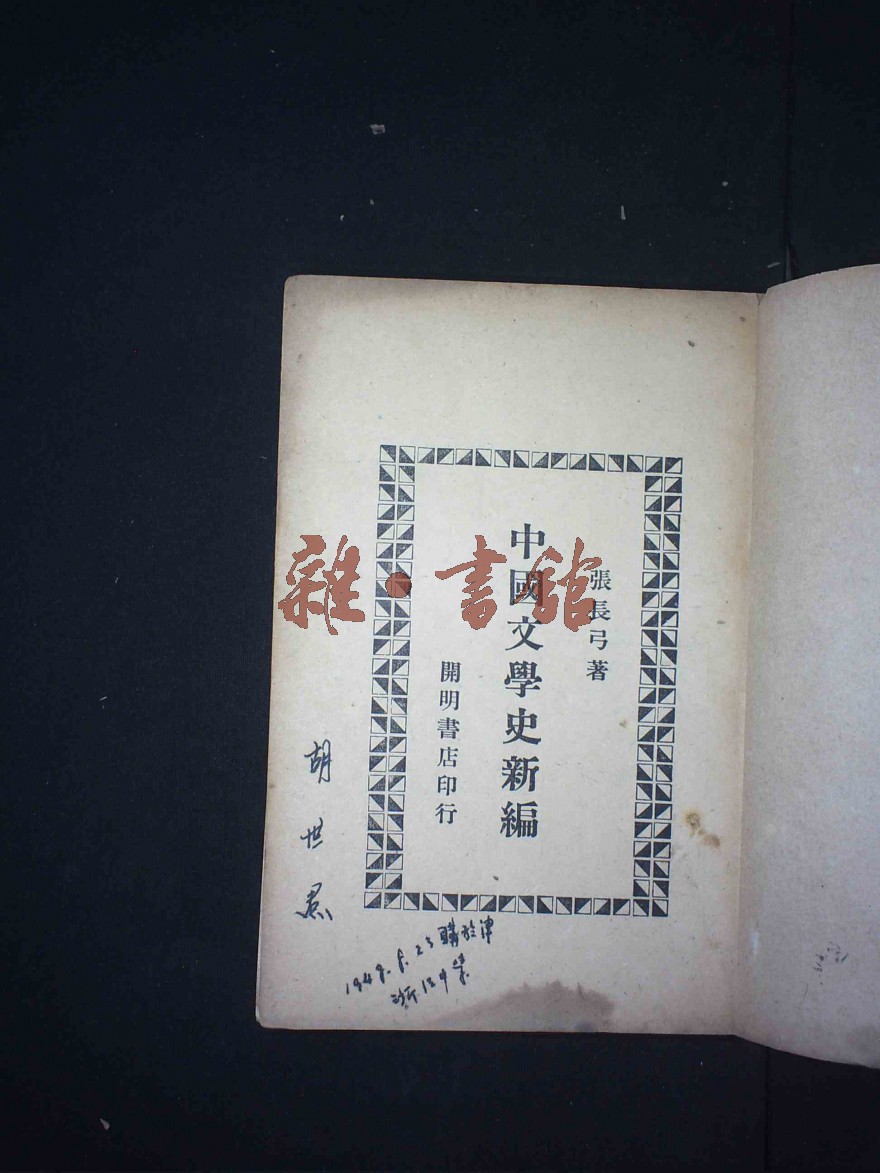 張長弓著
中國文學史新編
開明書店印行
雜·書館
胡世
購於津